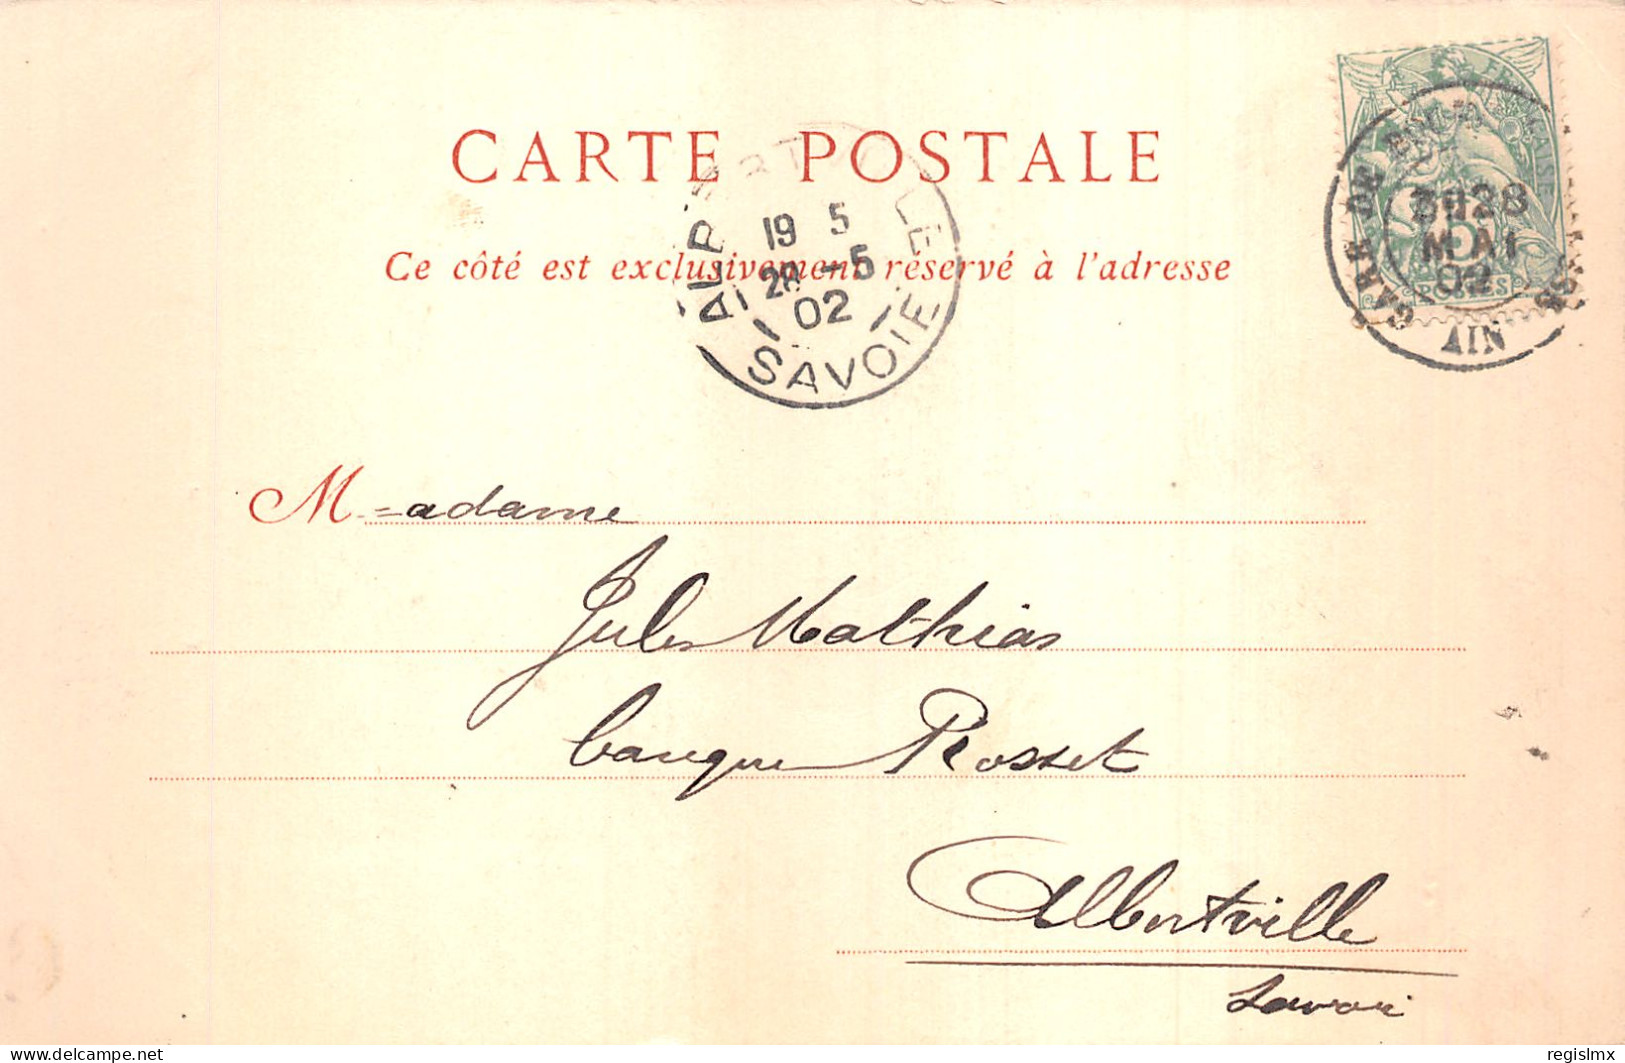 CARTE POSTALE
Ce côté est exclusivement réservé à l'adresse
ALBERTVILLE
19 5
28 -5
02
SAVOIE
GARE DE
28
MAI
02
AIN
FRANÇAISE
POSTES
Madame
Jules Mathias
banque Rosset
Albertville
Savoie
delcampe.net
regislmx